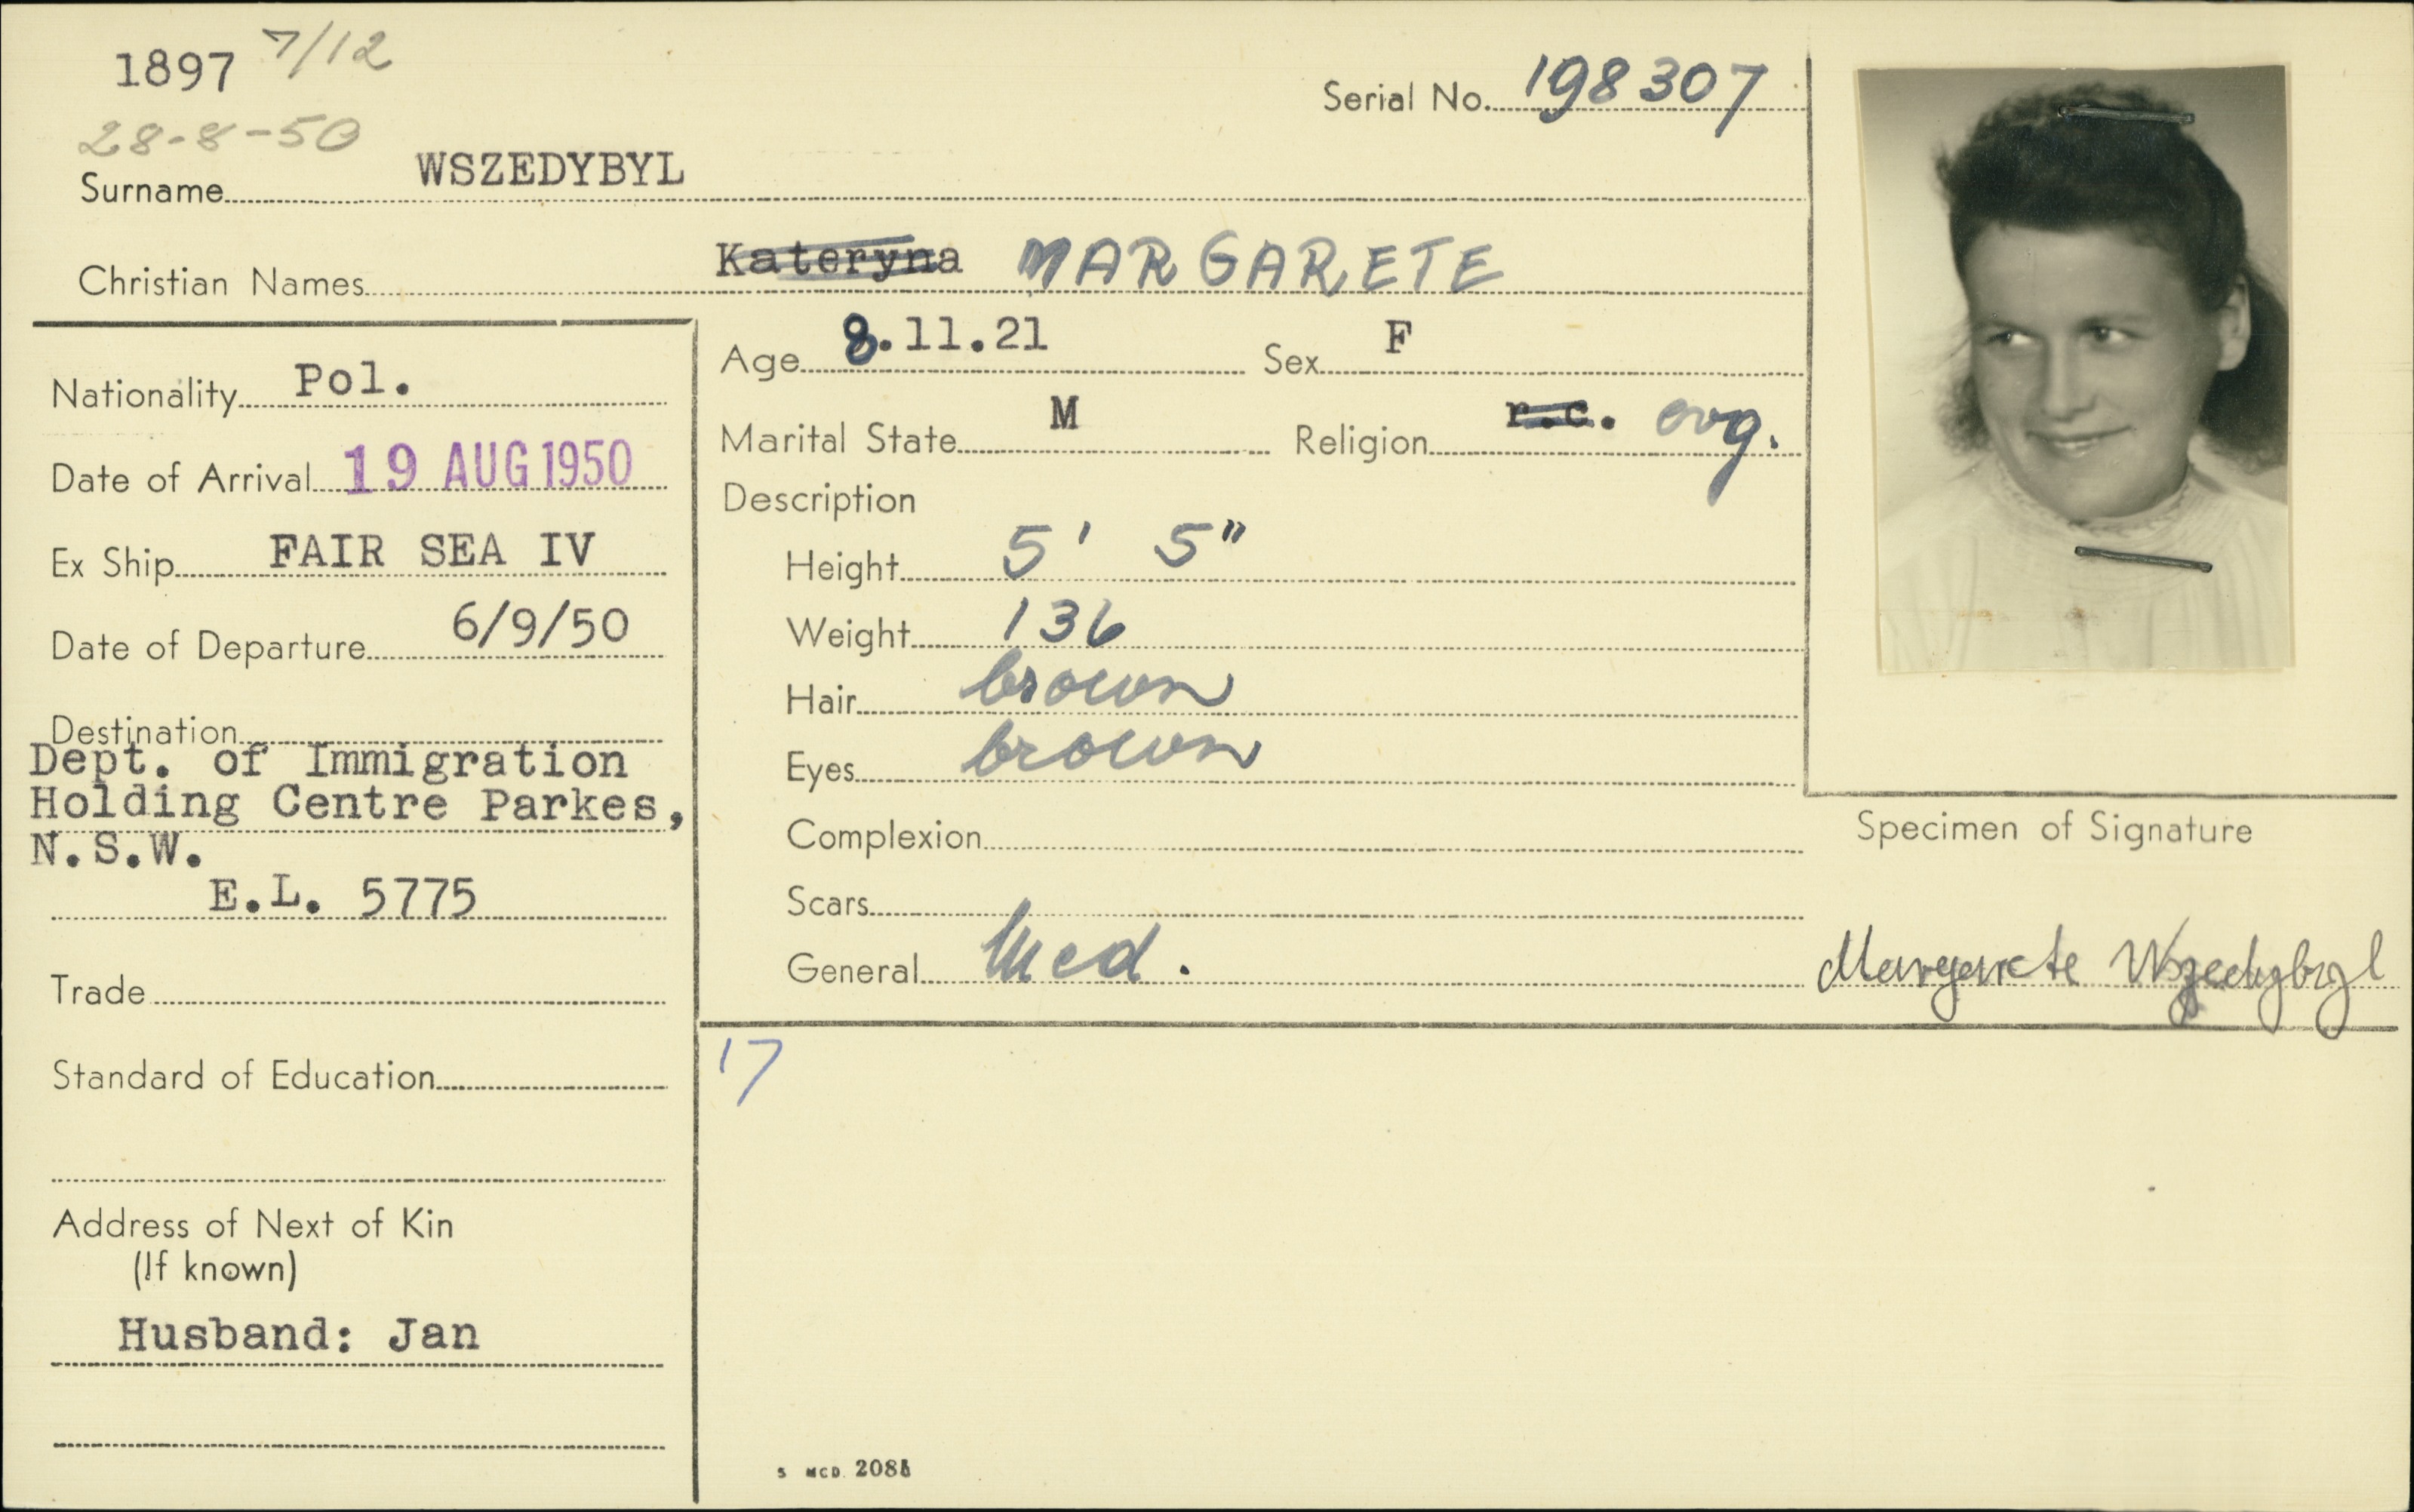 1897 7/12
28-8-50
Serial No. 198307
Surname WSZEDYBYL
Christian Names Kateryna MARGARETE
Age 8.11.21 Sex F
Nationality Pol.
Marital State M Religion r.c. evg.
Date of Arrival 19 AUG 1950
Description
Ex Ship FAIR SEA IV
Height 5' 5"
Date of Departure 6/9/50
Weight 136
Hair brown
Destination
Dept. of Immigration
Holding Centre Parkes,
N.S.W.
E.L. 5775
Eyes brown
Complexion
Scars
General Med.
Specimen of Signature
Margarete Wszedybyl
Trade
Standard of Education
17
Address of Next of Kin
(If known)
Husband: Jan
S MCD. 2086